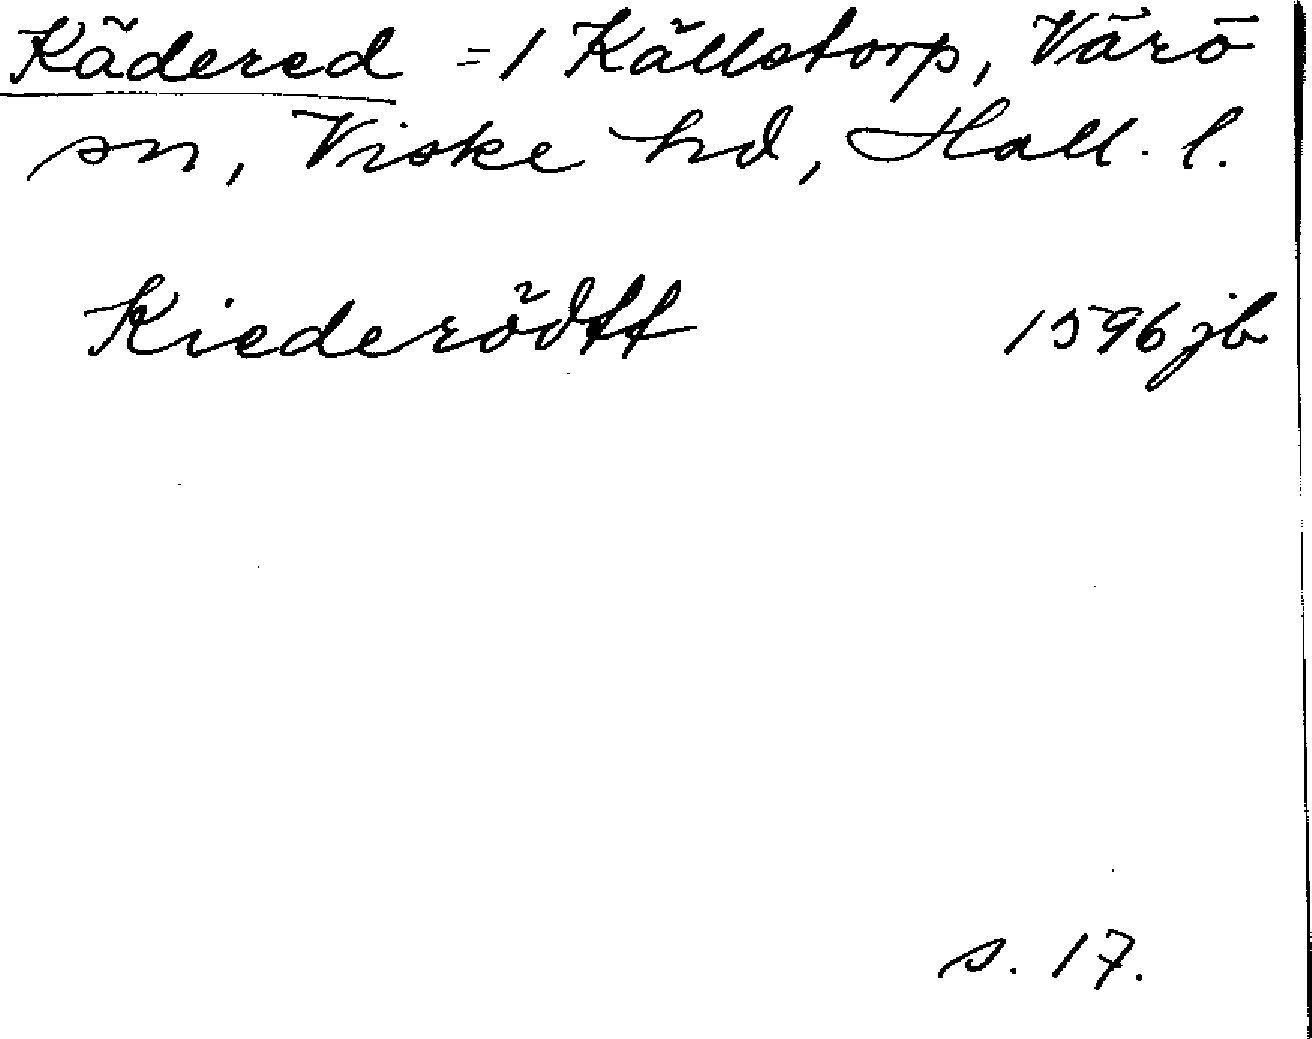 Kädered = 1 Källstorp, Värö
sn, Viske hd, Hall. l.
Kiederödtt 1596 jb
s. 17.